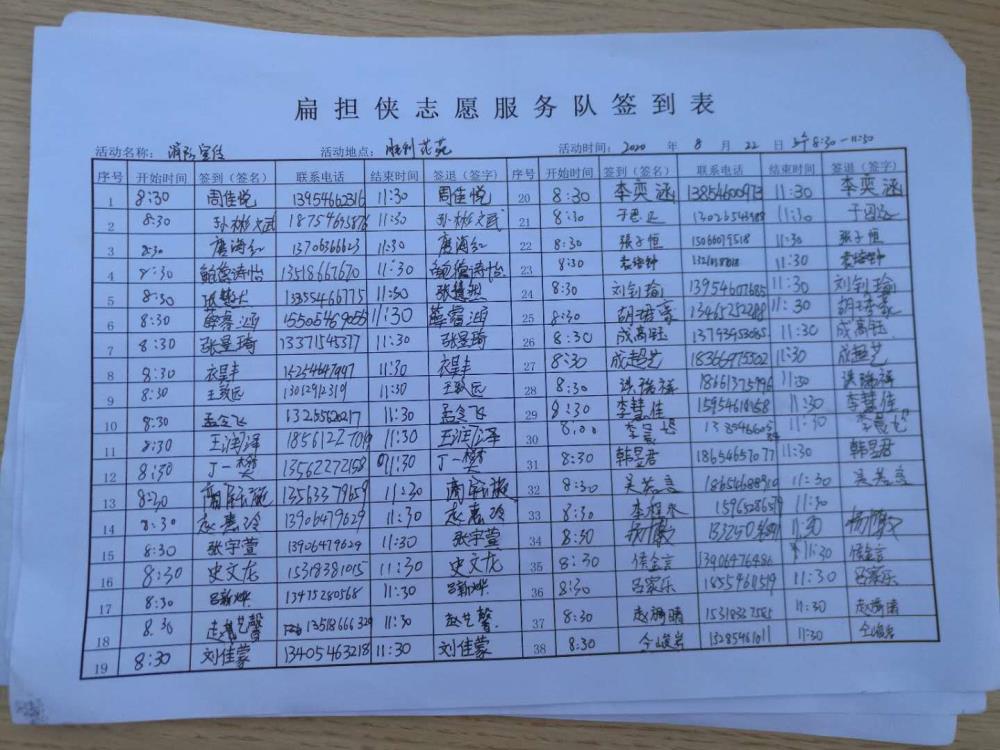 扁担侠志愿服务队签到表
活动名称: 消防宣传 活动地点: 胜利花苑 活动时间: 2020 年 8 月 22 日 8:30-11:30
序号 开始时间 签到(签名) 联系电话 结束时间 签退(签字) 序号 开始时间 签到(签名) 联系电话 结束时间 签退(签字)
1 8:30 周佳悦 13954662316 11:30 周佳悦 20 8:30 李奕涵 13854600973 11:30 李奕涵
2 8:30 孙彬文武 18754635876 11:30 孙彬文武 21 8:30 11:30
3 8:30 唐海红 13706366623 11:30 唐海红 22 8:30 张子恒 15066079518 11:30 张子恒
4 8:30 13518667670 11:30 23 8:30 11:30
5 8:30 13355466775 11:30 24 8:30 刘钊瑜 13954607685 11:30 刘钊瑜
6 8:30 薛睿涵 15505469055 11:30 薛睿涵 25 8:30 13465252288 11:30
7 8:30 张昱琦 13371545377 11:30 张昱琦 26 8:30 成高钰 13793953085 11:30 成高钰
8 8:30 15254647447 11:30 27 8:30 成超艺 18366975302 11:30 成超艺
9 8:30 王致远 13012912319 11:30 王致远 28 8:30 洪瑞祥 18661375996 11:30 洪瑞祥
10 8:30 孟令飞 13255620217 11:30 孟令飞 29 8:30 李慧佳 15954618258 11:30 李慧佳
11 8:30 王润泽 18561227019 11:30 王润泽 30 8:00 11:30
12 8:30 丁一樊 13562272158 11:30 丁一樊 31 8:30 韩昱君 18654657077 11:30 韩昱君
13 8:30 13563379659 11:30 32 8:30 吴若言 18654688910 11:30 吴若言
14 8:30 赵惠玲 13906479629 11:30 赵惠玲 33 8:30 15965286579 11:30
15 8:30 张宇萱 13906479629 11:30 张宇萱 34 8:30 11:30
16 8:30 史文龙 15318381015 11:30 史文龙 35 8:30 侯金言 13906476486 11:30 侯金言
17 8:30 吕新烨 13475280568 11:30 吕新烨 36 8:30 吕家乐 18554611519 11:30 吕家乐
18 8:30 赵艺馨 13518666329 11:30 赵艺馨 37 8:30 15318327585 11:30
19 8:30 刘佳蒙 13405463218 11:30 刘佳蒙 38 8:30 仝峻岩 13285461011 11:30 仝峻岩